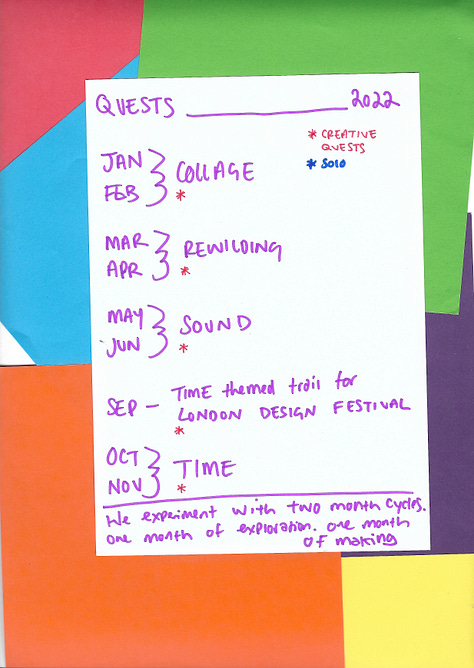 QUESTS ________ 2022
* CREATIVE
QUESTS
* SOLO
JAN
FEB
COLLAGE
*
MAR
APR
REWILDING
*
MAY
JUN
SOUND
*
SEP - TIME themed trail for
LONDON DESIGN FESTIVAL
*
OCT
NOV
TIME
*
We experiment with two month cycles.
one month of exploration. one month
of making